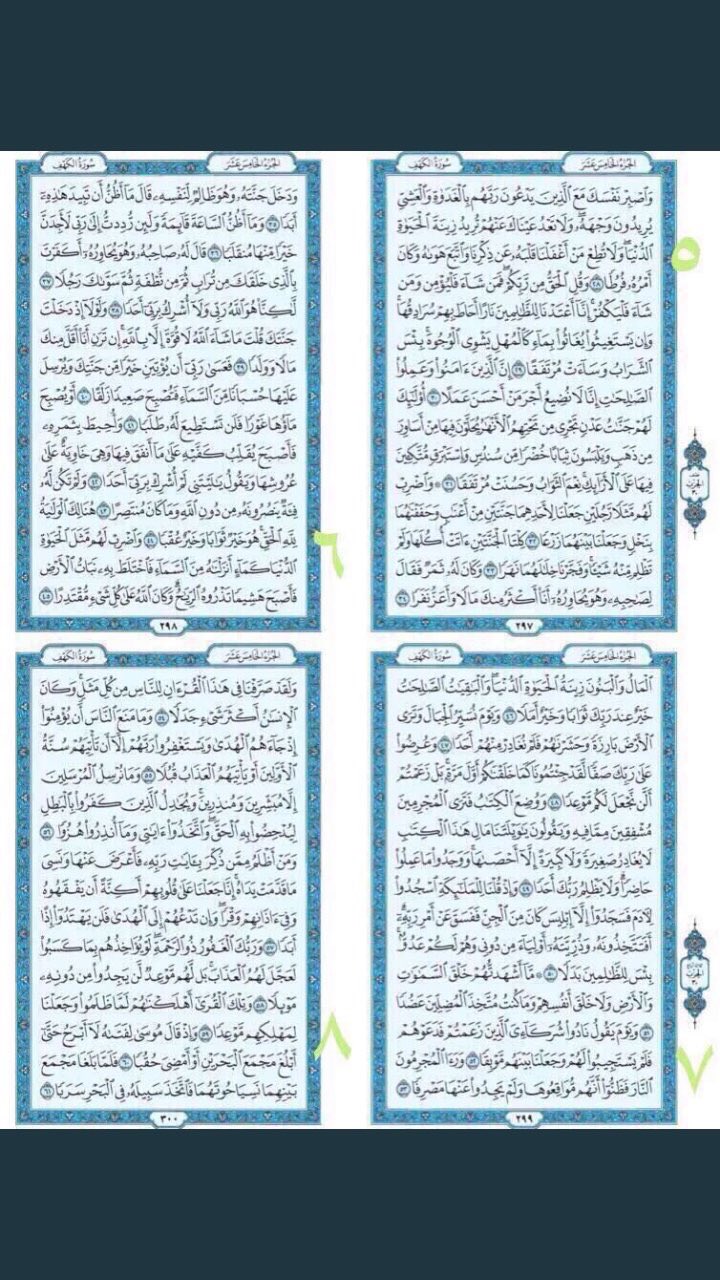 الجزء الخامس عشر
سورة الكهف
وَٱصْبِرْ نَفْسَكَ مَعَ ٱلَّذِينَ يَدْعُونَ رَبَّهُم بِٱلْغَدَوٰةِ وَٱلْعَشِيِّ
يُرِيدُونَ وَجْهَهُۥ ۖ وَلَا تَعْدُ عَيْنَاكَ عَنْهُمْ تُرِيدُ زِينَةَ ٱلْحَيَوٰةِ
ٱلدُّنْيَا ۖ وَلَا تُطِعْ مَنْ أَغْفَلْنَا قَلْبَهُۥ عَن ذِكْرِنَا وَٱتَّبَعَ هَوَىٰهُ وَكَانَ
أَمْرُهُۥ فُرُطًا ٢٨ وَقُلِ ٱلْحَقُّ مِن رَّبِّكُمْ ۖ فَمَن شَآءَ فَلْيُؤْمِن وَمَن
شَآءَ فَلْيَكْفُرْ ۚ إِنَّآ أَعْتَدْنَا لِلظَّٰلِمِينَ نَارًا أَحَاطَ بِهِمْ سُرَادِقُهَا ۚ
وَإِن يَسْتَغِيثُوا۟ يُغَاثُوا۟ بِمَآءٍ كَٱلْمُهْلِ يَشْوِى ٱلْوُجُوهَ ۚ بِئْسَ
ٱلشَّرَابُ وَسَآءَتْ مُرْتَفَقًا ٢٩ إِنَّ ٱلَّذِينَ ءَامَنُوا۟ وَعَمِلُوا۟
ٱلصَّٰلِحَٰتِ إِنَّا لَا نُضِيعُ أَجْرَ مَنْ أَحْسَنَ عَمَلًا ٣٠ أُو۟لَٰٓئِكَ
لَهُمْ جَنَّٰتُ عَدْنٍ تَجْرِى مِن تَحْتِهِمُ ٱلْأَنْهَٰرُ يُحَلَّوْنَ فِيهَا مِنْ أَسَاوِرَ
مِن ذَهَبٍ وَيَلْبَسُونَ ثِيَابًا خُضْرًا مِّن سُندُسٍ وَإِسْتَبْرَقٍ مُّتَّكِـِٔينَ
فِيهَا عَلَى ٱلْأَرَآئِكِ ۚ نِعْمَ ٱلثَّوَابُ وَحَسُنَتْ مُرْتَفَقًا ٣١ ۞ وَٱضْرِبْ
لَهُم مَّثَلًا رَّجُلَيْنِ جَعَلْنَا لِأَحَدِهِمَا جَنَّتَيْنِ مِنْ أَعْنَٰبٍ وَحَفَفْنَٰهُمَا
بِنَخْلٍ وَجَعَلْنَا بَيْنَهُمَا زَرْعًا ٣٢ كِلْتَا ٱلْجَنَّتَيْنِ ءَاتَتْ أُكُلَهَا وَلَمْ
تَظْلِم مِّنْهُ شَيْـًٔا ۚ وَفَجَّرْنَا خِلَٰلَهُمَا نَهَرًا ٣٣ وَكَانَ لَهُۥ ثَمَرٌ فَقَالَ
لِصَٰحِبِهِۦ وَهُوَ يُحَاوِرُهُۥٓ أَنَا۠ أَكْثَرُ مِنكَ مَالًا وَأَعَزُّ نَفَرًا ٣٤
٢٩٧
٥
الجزء الخامس عشر
سورة الكهف
وَدَخَلَ جَنَّتَهُۥ وَهُوَ ظَالِمٌ لِّنَفْسِهِۦ قَالَ مَآ أَظُنُّ أَن تَبِيدَ هَٰذِهِۦٓ
أَبَدًا ٣٥ وَمَآ أَظُنُّ ٱلسَّاعَةَ قَآئِمَةً وَلَئِن رُّدِدتُّ إِلَىٰ رَبِّى لَأَجِدَنَّ
خَيْرًا مِّنْهَا مُنقَلَبًا ٣٦ قَالَ لَهُۥ صَاحِبُهُۥ وَهُوَ يُحَاوِرُهُۥٓ أَكَفَرْتَ
بِٱلَّذِى خَلَقَكَ مِن تُرَابٍ ثُمَّ مِن نُّطْفَةٍ ثُمَّ سَوَّىٰكَ رَجُلًا ٣٧
لَّٰكِنَّا۠ هُوَ ٱللَّهُ رَبِّى وَلَآ أُشْرِكُ بِرَبِّىٓ أَحَدًا ٣٨ وَلَوْلَآ إِذْ دَخَلْتَ
جَنَّتَكَ قُلْتَ مَا شَآءَ ٱللَّهُ لَا قُوَّةَ إِلَّا بِٱللَّهِ ۚ إِن تَرَنِ أَنَا۠ أَقَلَّ مِنكَ
مَالًا وَوَلَدًا ٣٩ فَعَسَىٰ رَبِّىٓ أَن يُؤْتِيَنِ خَيْرًا مِّن جَنَّتِكَ وَيُرْسِلَ
عَلَيْهَا حُسْبَانًا مِّنَ ٱلسَّمَآءِ فَتُصْبِحَ صَعِيدًا زَلَقًا ٤٠ أَوْ يُصْبِحَ
مَآؤُهَا غَوْرًا فَلَن تَسْتَطِيعَ لَهُۥ طَلَبًا ٤١ وَأُحِيطَ بِثَمَرِهِۦ
فَأَصْبَحَ يُقَلِّبُ كَفَّيْهِ عَلَىٰ مَآ أَنفَقَ فِيهَا وَهِىَ خَاوِيَةٌ عَلَىٰ
عُرُوشِهَا وَيَقُولُ يَٰلَيْتَنِى لَمْ أُشْرِكْ بِرَبِّىٓ أَحَدًا ٤٢ وَلَمْ تَكُن لَّهُۥ
فِئَةٌ يَنصُرُونَهُۥ مِن دُونِ ٱللَّهِ وَمَا كَانَ مُنتَصِرًا ٤٣ هُنَالِكَ ٱلْوَلَٰيَةُ
لِلَّهِ ٱلْحَقِّ ۚ هُوَ خَيْرٌ ثَوَابًا وَخَيْرٌ عُقْبًا ٤٤ وَٱضْرِبْ لَهُم مَّثَلَ ٱلْحَيَوٰةِ
ٱلدُّنْيَا كَمَآءٍ أَنزَلْنَٰهُ مِنَ ٱلسَّمَآءِ فَٱخْتَلَطَ بِهِۦ نَبَاتُ ٱلْأَرْضِ
فَأَصْبَحَ هَشِيمًا تَذْرُوهُ ٱلرِّيَٰحُ ۗ وَكَانَ ٱللَّهُ عَلَىٰ كُلِّ شَىْءٍ مُّقْتَدِرًا ٤٥
٢٩٨
٦
الجزء الخامس عشر
سورة الكهف
ٱلْمَالُ وَٱلْبَنُونَ زِينَةُ ٱلْحَيَوٰةِ ٱلدُّنْيَا ۖ وَٱلْبَٰقِيَٰتُ ٱلصَّٰلِحَٰتُ
خَيْرٌ عِندَ رَبِّكَ ثَوَابًا وَخَيْرٌ أَمَلًا ٤٦ وَيَوْمَ نُسَيِّرُ ٱلْجِبَالَ وَتَرَى
ٱلْأَرْضَ بَارِزَةً وَحَشَرْنَٰهُمْ فَلَمْ نُغَادِرْ مِنْهُمْ أَحَدًا ٤٧ وَعُرِضُوا۟
عَلَىٰ رَبِّكَ صَفًّا لَّقَدْ جِئْتُمُونَا كَمَا خَلَقْنَٰكُمْ أَوَّلَ مَرَّةٍۭ ۚ بَلْ زَعَمْتُمْ
أَلَّن نَّجْعَلَ لَكُم مَّوْعِدًا ٤٨ وَوُضِعَ ٱلْكِتَٰبُ فَتَرَى ٱلْمُجْرِمِينَ
مُشْفِقِينَ مِمَّا فِيهِ وَيَقُولُونَ يَٰوَيْلَتَنَا مَالِ هَٰذَا ٱلْكِتَٰبِ
لَا يُغَادِرُ صَغِيرَةً وَلَا كَبِيرَةً إِلَّآ أَحْصَىٰهَا ۚ وَوَجَدُوا۟ مَا عَمِلُوا۟
حَاضِرًا ۗ وَلَا يَظْلِمُ رَبُّكَ أَحَدًا ٤٩ وَإِذْ قُلْنَا لِلْمَلَٰٓئِكَةِ ٱسْجُدُوا۟
لِـَٔادَمَ فَسَجَدُوٓا۟ إِلَّآ إِبْلِيسَ كَانَ مِنَ ٱلْجِنِّ فَفَسَقَ عَنْ أَمْرِ رَبِّهِۦٓ ۗ
أَفَتَتَّخِذُونَهُۥ وَذُرِّيَّتَهُۥٓ أَوْلِيَآءَ مِن دُونِى وَهُمْ لَكُمْ عَدُوٌّۢ ۚ
بِئْسَ لِلظَّٰلِمِينَ بَدَلًا ٥٠ ۞ مَّآ أَشْهَدتُّهُمْ خَلْقَ ٱلسَّمَٰوَٰتِ
وَٱلْأَرْضِ وَلَا خَلْقَ أَنفُسِهِمْ وَمَا كُنتُ مُتَّخِذَ ٱلْمُضِلِّينَ عَضُدًا
٥١ وَيَوْمَ يَقُولُ نَادُوا۟ شُرَكَآءِىَ ٱلَّذِينَ زَعَمْتُمْ فَدَعَوْهُمْ
فَلَمْ يَسْتَجِيبُوا۟ لَهُمْ وَجَعَلْنَا بَيْنَهُم مَّوْبِقًا ٥٢ وَرَءَا ٱلْمُجْرِمُونَ
ٱلنَّارَ فَظَنُّوٓا۟ أَنَّهُم مُّوَاقِعُوهَا وَلَمْ يَجِدُوا۟ عَنْهَا مَصْرِفًا ٥٣
٢٩٩
٧
الجزء الخامس عشر
سورة الكهف
وَلَقَدْ صَرَّفْنَا فِى هَٰذَا ٱلْقُرْءَانِ لِلنَّاسِ مِن كُلِّ مَثَلٍ ۚ وَكَانَ
ٱلْإِنسَٰنُ أَكْثَرَ شَىْءٍ جَدَلًا ٥٤ وَمَا مَنَعَ ٱلنَّاسَ أَن يُؤْمِنُوٓا۟
إِذْ جَآءَهُمُ ٱلْهُدَىٰ وَيَسْتَغْفِرُوا۟ رَبَّهُمْ إِلَّآ أَن تَأْتِيَهُمْ سُنَّةُ
ٱلْأَوَّلِينَ أَوْ يَأْتِيَهُمُ ٱلْعَذَابُ قُبُلًا ٥٥ وَمَا نُرْسِلُ ٱلْمُرْسَلِينَ
إِلَّا مُبَشِّرِينَ وَمُنذِرِينَ ۚ وَيُجَٰدِلُ ٱلَّذِينَ كَفَرُوا۟ بِٱلْبَٰطِلِ
لِيُدْحِضُوا۟ بِهِ ٱلْحَقَّ ۖ وَٱتَّخَذُوٓا۟ ءَايَٰتِى وَمَآ أُنذِرُوا۟ هُزُوًا ٥٦
وَمَنْ أَظْلَمُ مِمَّن ذُكِّرَ بِـَٔايَٰتِ رَبِّهِۦ فَأَعْرَضَ عَنْهَا وَنَسِىَ
مَا قَدَّمَتْ يَدَاهُ ۚ إِنَّا جَعَلْنَا عَلَىٰ قُلُوبِهِمْ أَكِنَّةً أَن يَفْقَهُوهُ
وَفِىٓ ءَاذَانِهِمْ وَقْرًا ۖ وَإِن تَدْعُهُمْ إِلَى ٱلْهُدَىٰ فَلَن يَهْتَدُوٓا۟ إِذًا
أَبَدًا ٥٧ وَرَبُّكَ ٱلْغَفُورُ ذُو ٱلرَّحْمَةِ ۖ لَوْ يُؤَاخِذُهُم بِمَا كَسَبُوا۟
لَعَجَّلَ لَهُمُ ٱلْعَذَابَ ۚ بَل لَّهُم مَّوْعِدٌ لَّن يَجِدُوا۟ مِن دُونِهِۦ
مَوْئِلًا ٥٨ وَتِلْكَ ٱلْقُرَىٰٓ أَهْلَكْنَٰهُمْ لَمَّا ظَلَمُوا۟ وَجَعَلْنَا
لِمَهْلِكِهِم مَّوْعِدًا ٥٩ وَإِذْ قَالَ مُوسَىٰ لِفَتَىٰهُ لَآ أَبْرَحُ حَتَّىٰٓ
أَبْلُغَ مَجْمَعَ ٱلْبَحْرَيْنِ أَوْ أَمْضِىَ حُقُبًا ٦٠ فَلَمَّا بَلَغَا مَجْمَعَ
بَيْنِهِمَا نَسِيَا حُوتَهُمَا فَٱتَّخَذَ سَبِيلَهُۥ فِى ٱلْبَحْرِ سَرَبًا ٦١
٣٠٠
٨